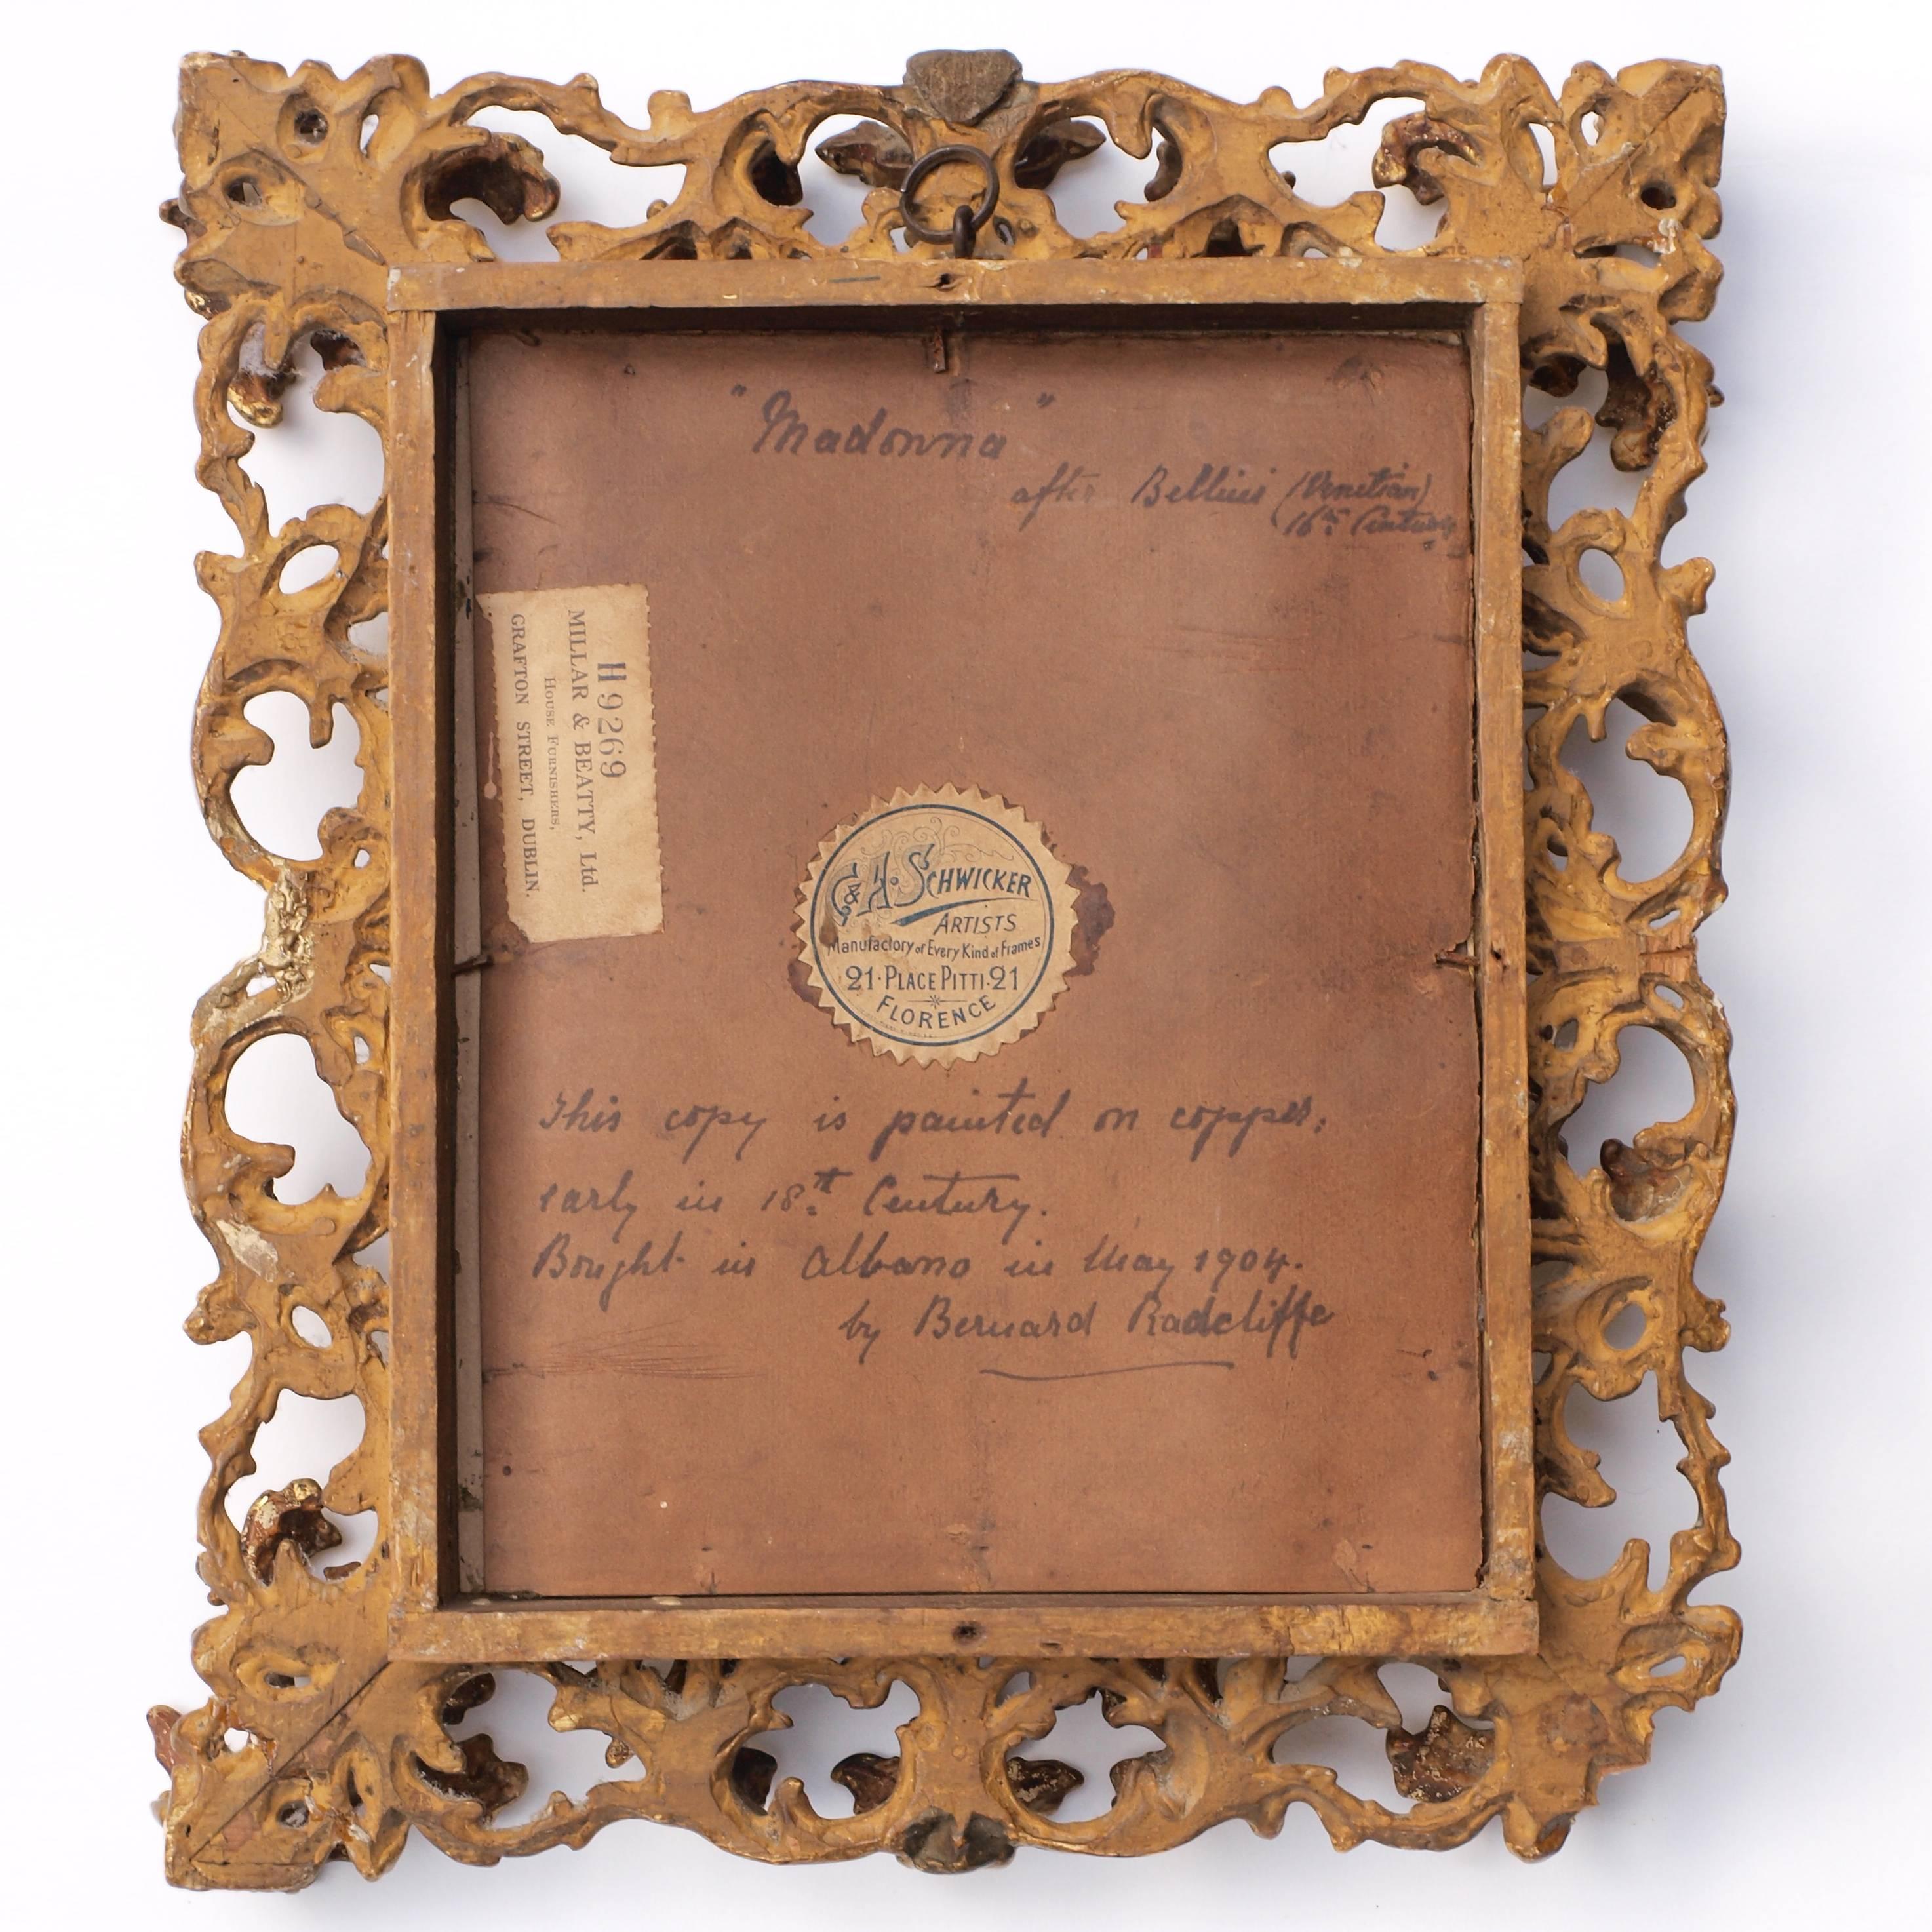 "Madonna"
after Bellini (Venetian)
16th Century
H 9269
MILLAR & BEATTY, Ltd.
HOUSE FURNISHERS,
GRAFTON STREET, DUBLIN.
C & A. SCHWICKER
ARTISTS
Manufactory of Every Kind of Frames
21·PLACE PITTI·21
FLORENCE
This copy is painted on copper,
early in 18th Century.
Bought in Albano in May 1904.
by Bernard Radcliffe